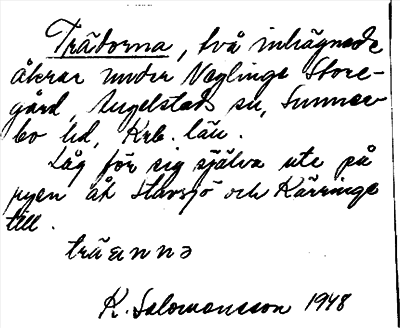 Trädorna, två inhägnade
åkrar under Naglinge Store-
gård, Angelstads sn, Sunner-
bo hd, Krb. län.
Låg för sig själva ute på
ryen åt Stavsjö och Kärringe
till.
träanna
K. Salomonsson 1948